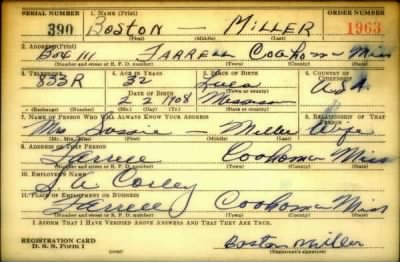 SERIAL NUMBER 1. NAME (Print) ORDER NUMBER
390 BOSTON — MILLER 1963
2. ADDRESS (Print)
Box 111 FARRELL Coahoma Miss
(Number and street or R. F. D. number) (Town) (County) (State)
3. TELEPHONE 4. AGE IN YEARS 5. PLACE OF BIRTH 6. COUNTRY OF CITIZENSHIP
853R 32 Lula
DATE OF BIRTH (Town or county)
2 2 1908 U.S.A.
(Exchange) (Number) (Mo.) (Day) (Yr.) (State or country)
7. NAME OF PERSON WHO WILL ALWAYS KNOW YOUR ADDRESS 8. RELATIONSHIP OF THAT PERSON
Mrs — Miller Wife
(Mr., Mrs., Miss) (First) (Middle) (Last)
9. ADDRESS OF THAT PERSON
Farrell Coahoma Miss
(Number and street or R. F. D. number) (Town) (County) (State)
10. EMPLOYER'S NAME
11. PLACE OF EMPLOYMENT OR BUSINESS
Farrell Coahoma Miss
(Number and street or R. F. D. number) (Town) (County) (State)
I AFFIRM THAT I HAVE VERIFIED ABOVE ANSWERS AND THAT THEY ARE TRUE.
REGISTRATION CARD
D. S. S. Form 1 Boston Miller
(Registrant's signature)